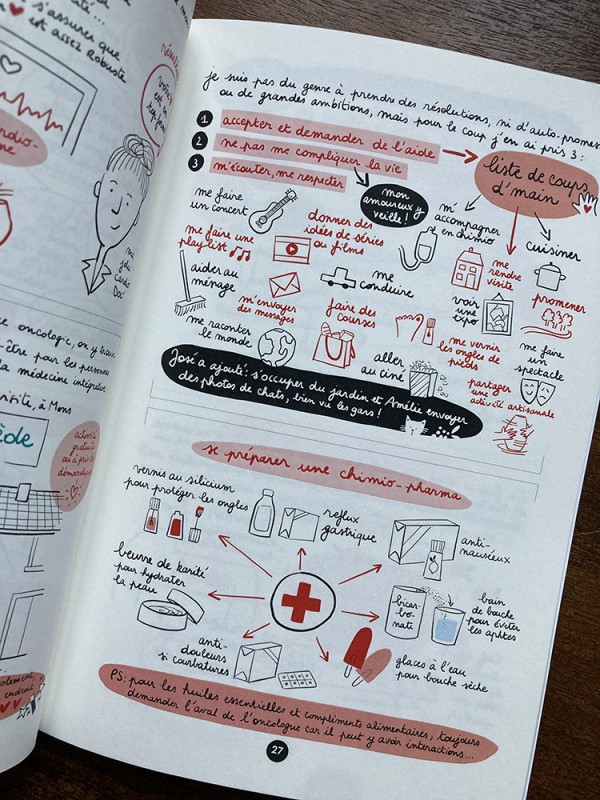 s'assurer que
est assez robuste
je suis pas du genre à prendre des résolutions, ni d'auto-promes
ou de grandes ambitions, mais pour le coup j'en ai pris 3 :
1 accepter et demander de l'aide
2 ne pas me compliquer la vie
3 m'écouter, me respecter
liste de coups
d'main
mon
amoureux y
veille !
me faire
un concert
me faire une
playlist
donner des
idées de séries
ou films
m'
accompagner
en chimio
cuisiner
aider au
ménage
m'envoyer
des messages
me
conduire
me
rendre
visite
voir
une
expo
promener
me raconter
le monde
faire des
courses
aller
au ciné
me vernir
les ongles
de
pieds
me faire
un
spectacle
partager
une
activité artisanale
José a ajouté : s'occuper du jardin et Amélie envoyer
des photos de chats, bien vu les gars !
se préparer une chimio-pharma
vernis au silicium
pour protéger les ongles
reflux
gastrique
anti-
nauséeux
beurre de karité
pour hydrater
la peau
bicar-
bo
nate
bain
de bouche
pour éviter
les aphtes
anti-
douleurs
si courbatures
glaces à l'eau
pour bouche sèche
PS : pour les huiles essentielles et compléments alimentaires, toujours
demander l'aval de l'oncologue car il peut y avoir interactions...
27
oncologie, on y
être pour les personnes
la médecine intégrative
, à Mons
activités
gratuites
ou à prix
démocratique